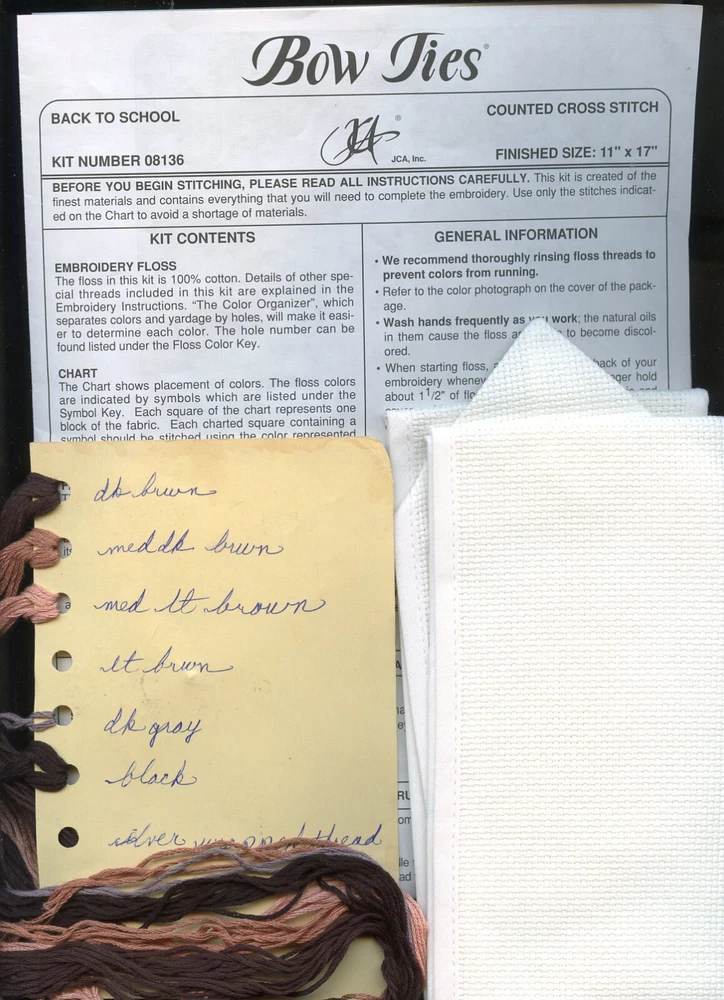 Bow Ties®
BACK TO SCHOOL
COUNTED CROSS STITCH
JCA, Inc.
KIT NUMBER 08136
FINISHED SIZE: 11" x 17"
BEFORE YOU BEGIN STITCHING, PLEASE READ ALL INSTRUCTIONS CAREFULLY. This kit is created of the
finest materials and contains everything that you will need to complete the embroidery. Use only the stitches indicat-
ed on the Chart to avoid a shortage of materials.
KIT CONTENTS
EMBROIDERY FLOSS
The floss in this kit is 100% cotton. Details of other spe-
cial threads included in this kit are explained in the
Embroidery Instructions. "The Color Organizer", which
separates colors and yardage by holes, will make it easi-
er to determine each color. The hole number can be
found listed under the Floss Color Key.
CHART
The Chart shows placement of colors. The floss colors
are indicated by symbols which are listed under the
Symbol Key. Each square of the chart represents one
block of the fabric. Each charted square containing a
symbol should be stitched using the color represented
GENERAL INFORMATION
• We recommend thoroughly rinsing floss threads to
prevent colors from running.
• Refer to the color photograph on the cover of the pack-
age.
• Wash hands frequently as you work; the natural oils
in them cause the floss to become discol-
ored.
• When starting floss, back of your
embroidery hold
about 1 1/2" of
dk brwn
med dk brwn
med lt brown
lt brwn
dk gray
black
silver wrapped thread